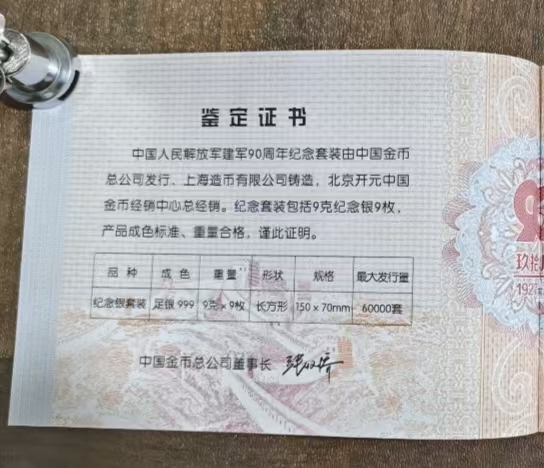 鉴定证书
中国人民解放军建军90周年纪念套装由中国金币
总公司发行、上海造币有限公司铸造，北京开元中国
金币经销中心总经销。纪念套装包括9克纪念银9枚，
产品成色标准、重量合格，谨此证明。
品种 成色 重量 形状 规格 最大发行量
纪念银套装 足银999 9克×9枚 长方形 150×70mm 60000套
中国金币总公司董事长
玖拾
192